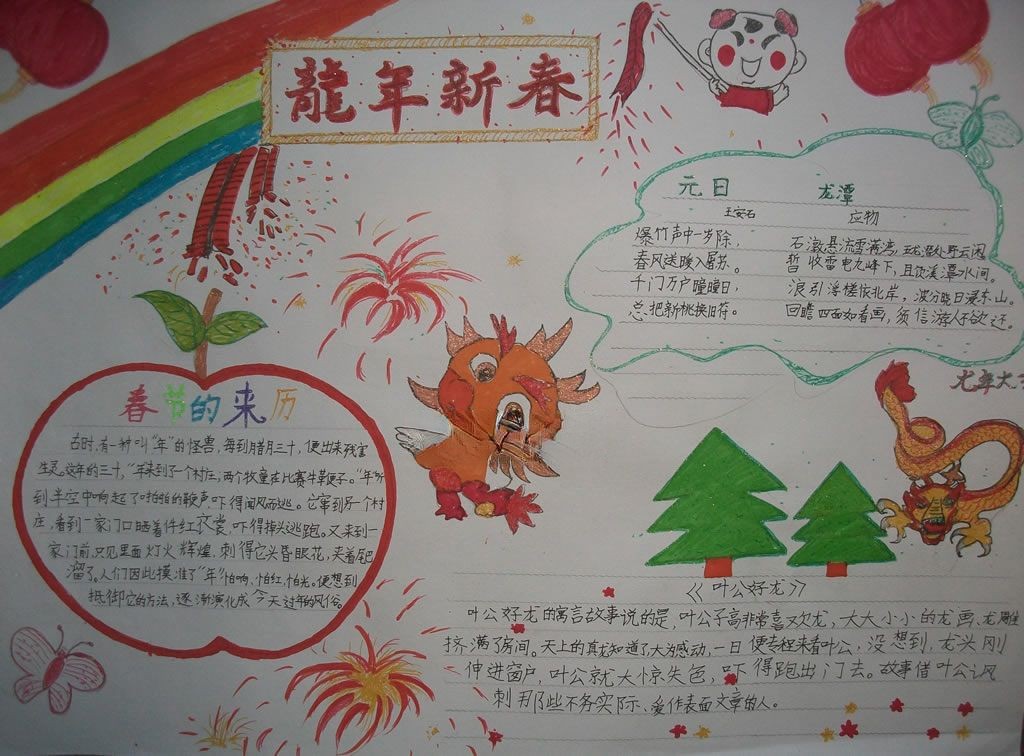 龍年新春
元日
王安石
爆竹声中一岁除，
春风送暖入屠苏。
千门万户曈曈日，
总把新桃换旧符。
龙潭
应物
石激悬流雪满湾，五龙潜处野云闲
暂收雷电九峰下，且饮溪潭一水间。
浪引浮槎依北岸，波分晓日浸东山。
回瞻四面如看画，须信游人不欲还。
春节的来历
古时，有一种叫“年”的怪兽，每到腊月三十，便出来残害
生灵。这年的三十，“年来到了一个村庄，两个牧童在比赛牛草便子。“年”听
到半空中响起了啪啪的歌声，吓得闻风而逃。它窜到另一个村
庄，看到一家门口晒着件红衣裳，吓得掉头逃跑。又来到一
家门前，只见里面灯火辉煌，刺得它头昏眼花，夹着尾巴
溜了。人们因此摸准了“年”怕响、怕红、怕光。便想到
抵御它的方法，逐渐演化成今天过年的风俗。
龙年大
《叶公好龙》
叶公好龙的寓言故事说的是，叶公子高非常喜欢龙，大大小小的龙画、龙雕
挤满了房间。天上的真龙知道了大为感动，一日便专程来看叶公，没想到，龙头刚
伸进窗户，叶公就大惊失色，吓得跑出门去。故事借叶公讽
刺那些不务实际、爱作表面文章的人。